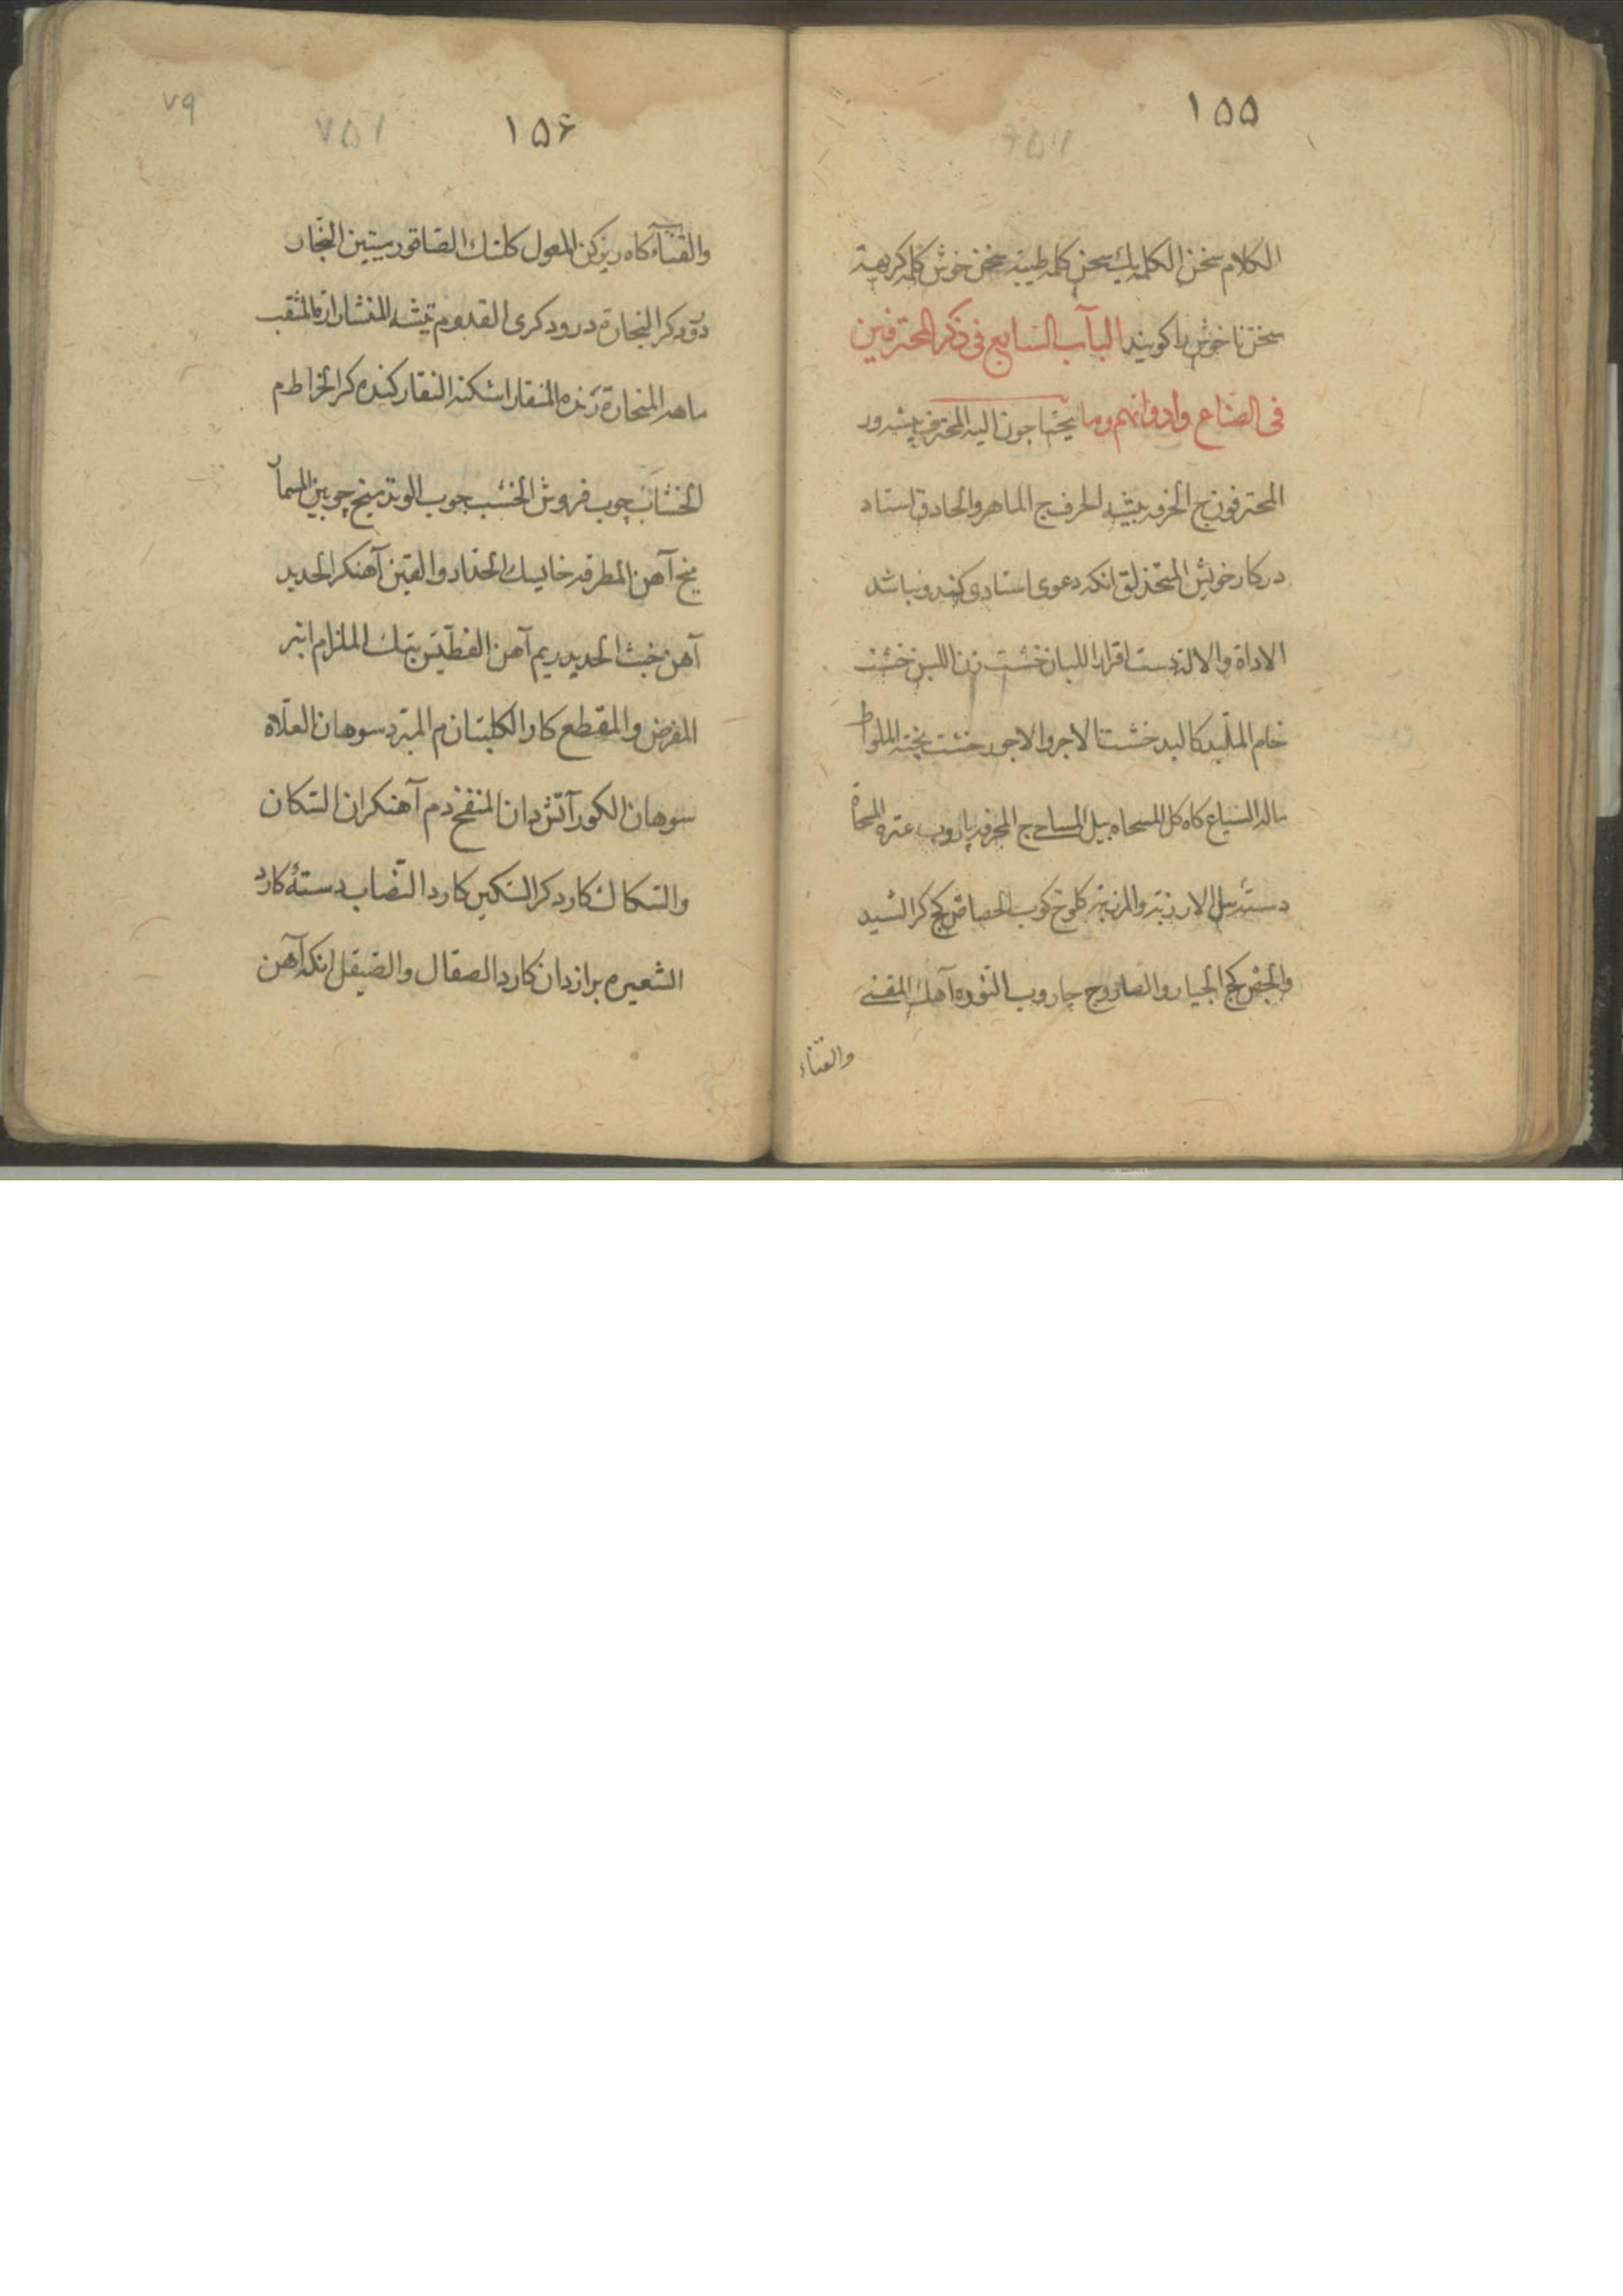 ۱۵۵
الکلام سخن الکلمه یک سخن کلمه طیبه سخن خوش کلمه کریهة
سخن ناخوش را کویند الباب السابع فی ذکر المحترفین
فی الصناع وادواتهم وما یحتاجون الیه المحترف پیشه ور
المحترفون ج الحرفه پیشه الحرف ج الماهر والحاذق استاد
در کار خویش المتحذلق انکه دعوی استادی کند ونباشد
الاداة والالة دست افزار اللبان خشت زن اللبن خشت
خام الملبن کالبد خشت الاجر والاجور خشت پخته الملواط
ماله السیاع کاه کل المسحاه بیل المساحی ج المجرفه پاروب عتره المسحاة
دسته بیل الارزبه والمرزبه کلوخ کوب الجصاص کج کر الشید
والجص کج الجیار والصاروج جاروب النوره آهک المقنی
والقناء
۷۹
۱۵۶
۷۵۱
والقناء کاه ریز کن المعول کلنک الصاقور میتین النجار
درودکر النجارة درودکری القدوم تیشه المنشار اره المثقب
ماهه المنحارة رنده المنقار اشکنه النقار کنده کر الخراط م
الخشاب چوب فروش الخشب جوب الوتد میخ چوبین المسمار
میخ آهن المطرقه خایسک الحداد والقین آهنکر الحدید
آهن خبث الحدید ریم آهن الفطیس پتک الملزام انبر
المفرض والمقطع کاز الکلبتان م المبرد سوهان العلاه
سوهان الکور آتش دان المنفخ دم آهنکران السکان
والسکاک کارد کر السکین کارد النصاب دسته کارد
الشعیره برازدان کارد الصقال والصیقل انکه آهن